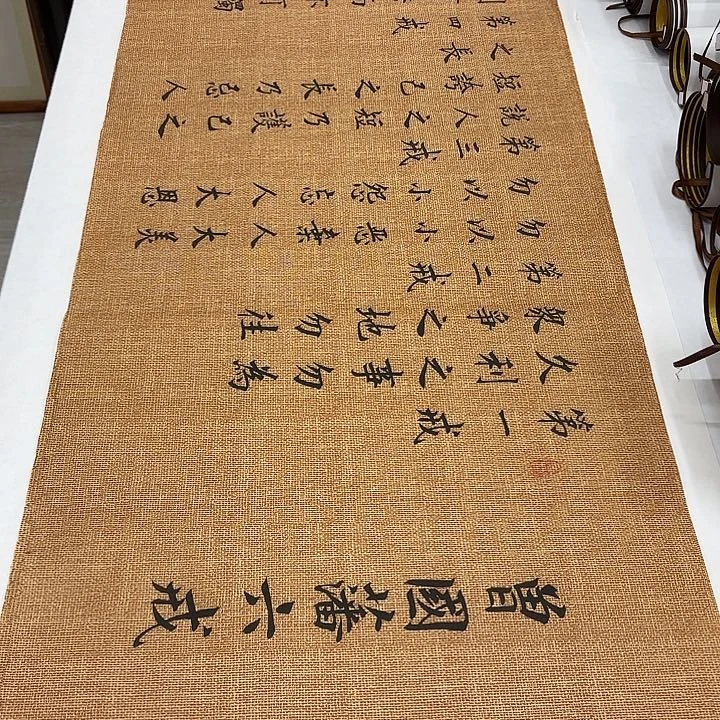 曾國藩六戒
第一戒
久利之事勿為
衆爭之地勿往
第二戒
勿以小惡棄人大美
勿以小怨忘人大恩
第三戒
說人之短乃護己之
短誇己之長乃忌人
之長
第四戒